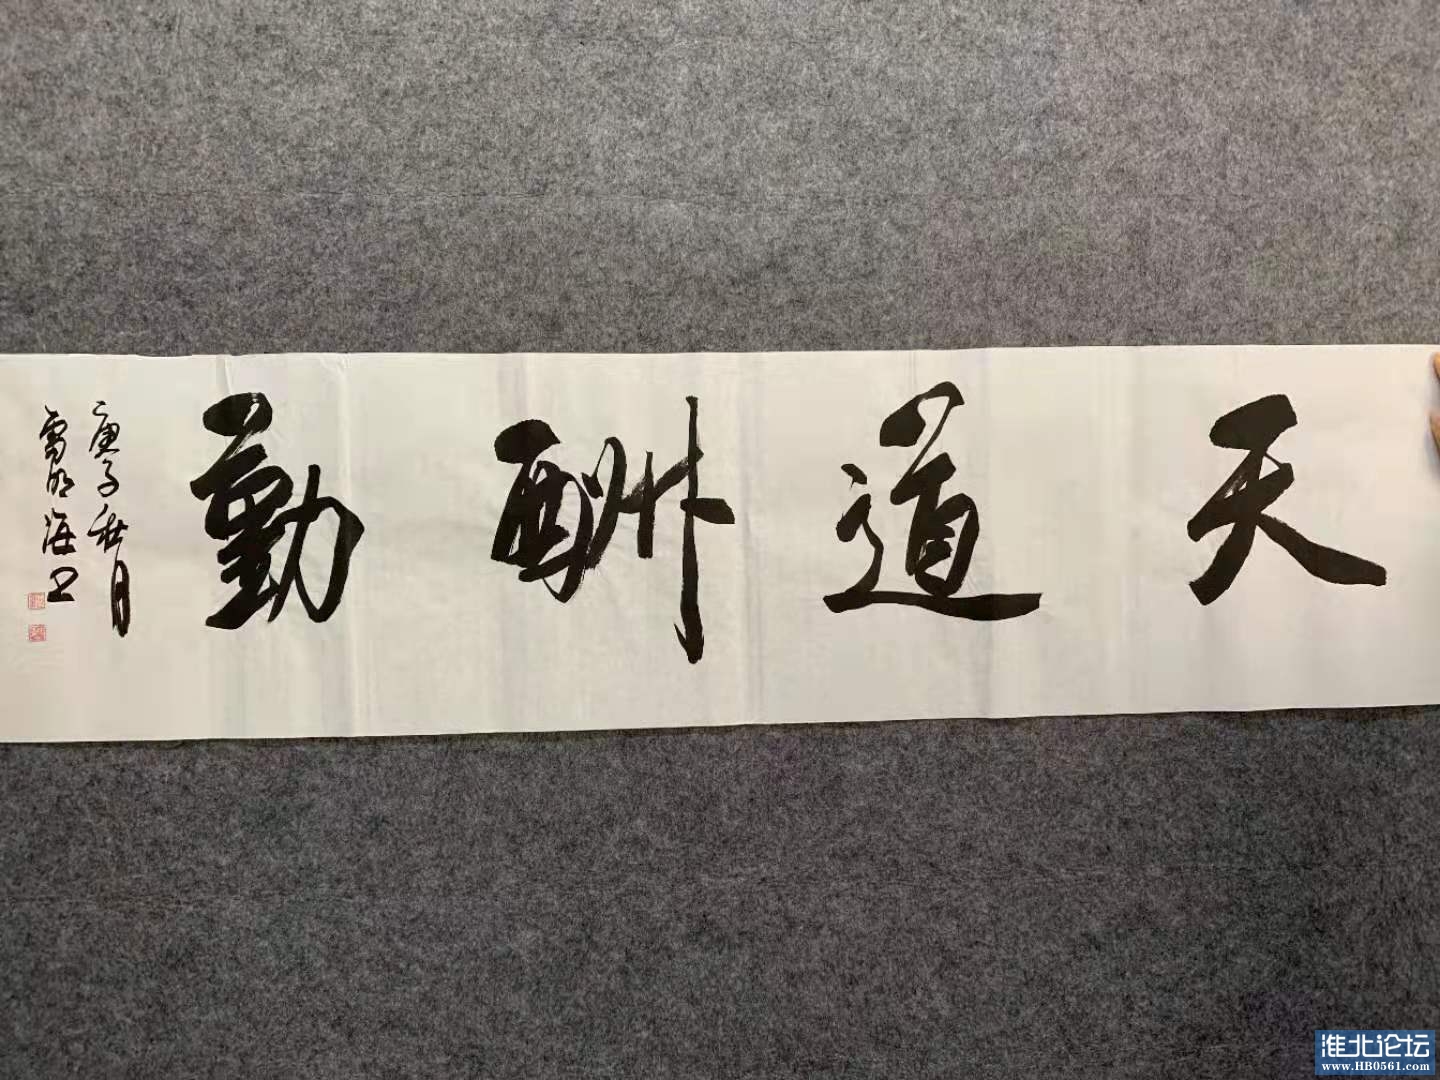 天道酬勤
庚子秋月
雪明海书
淮北论坛
www.HB0561.com